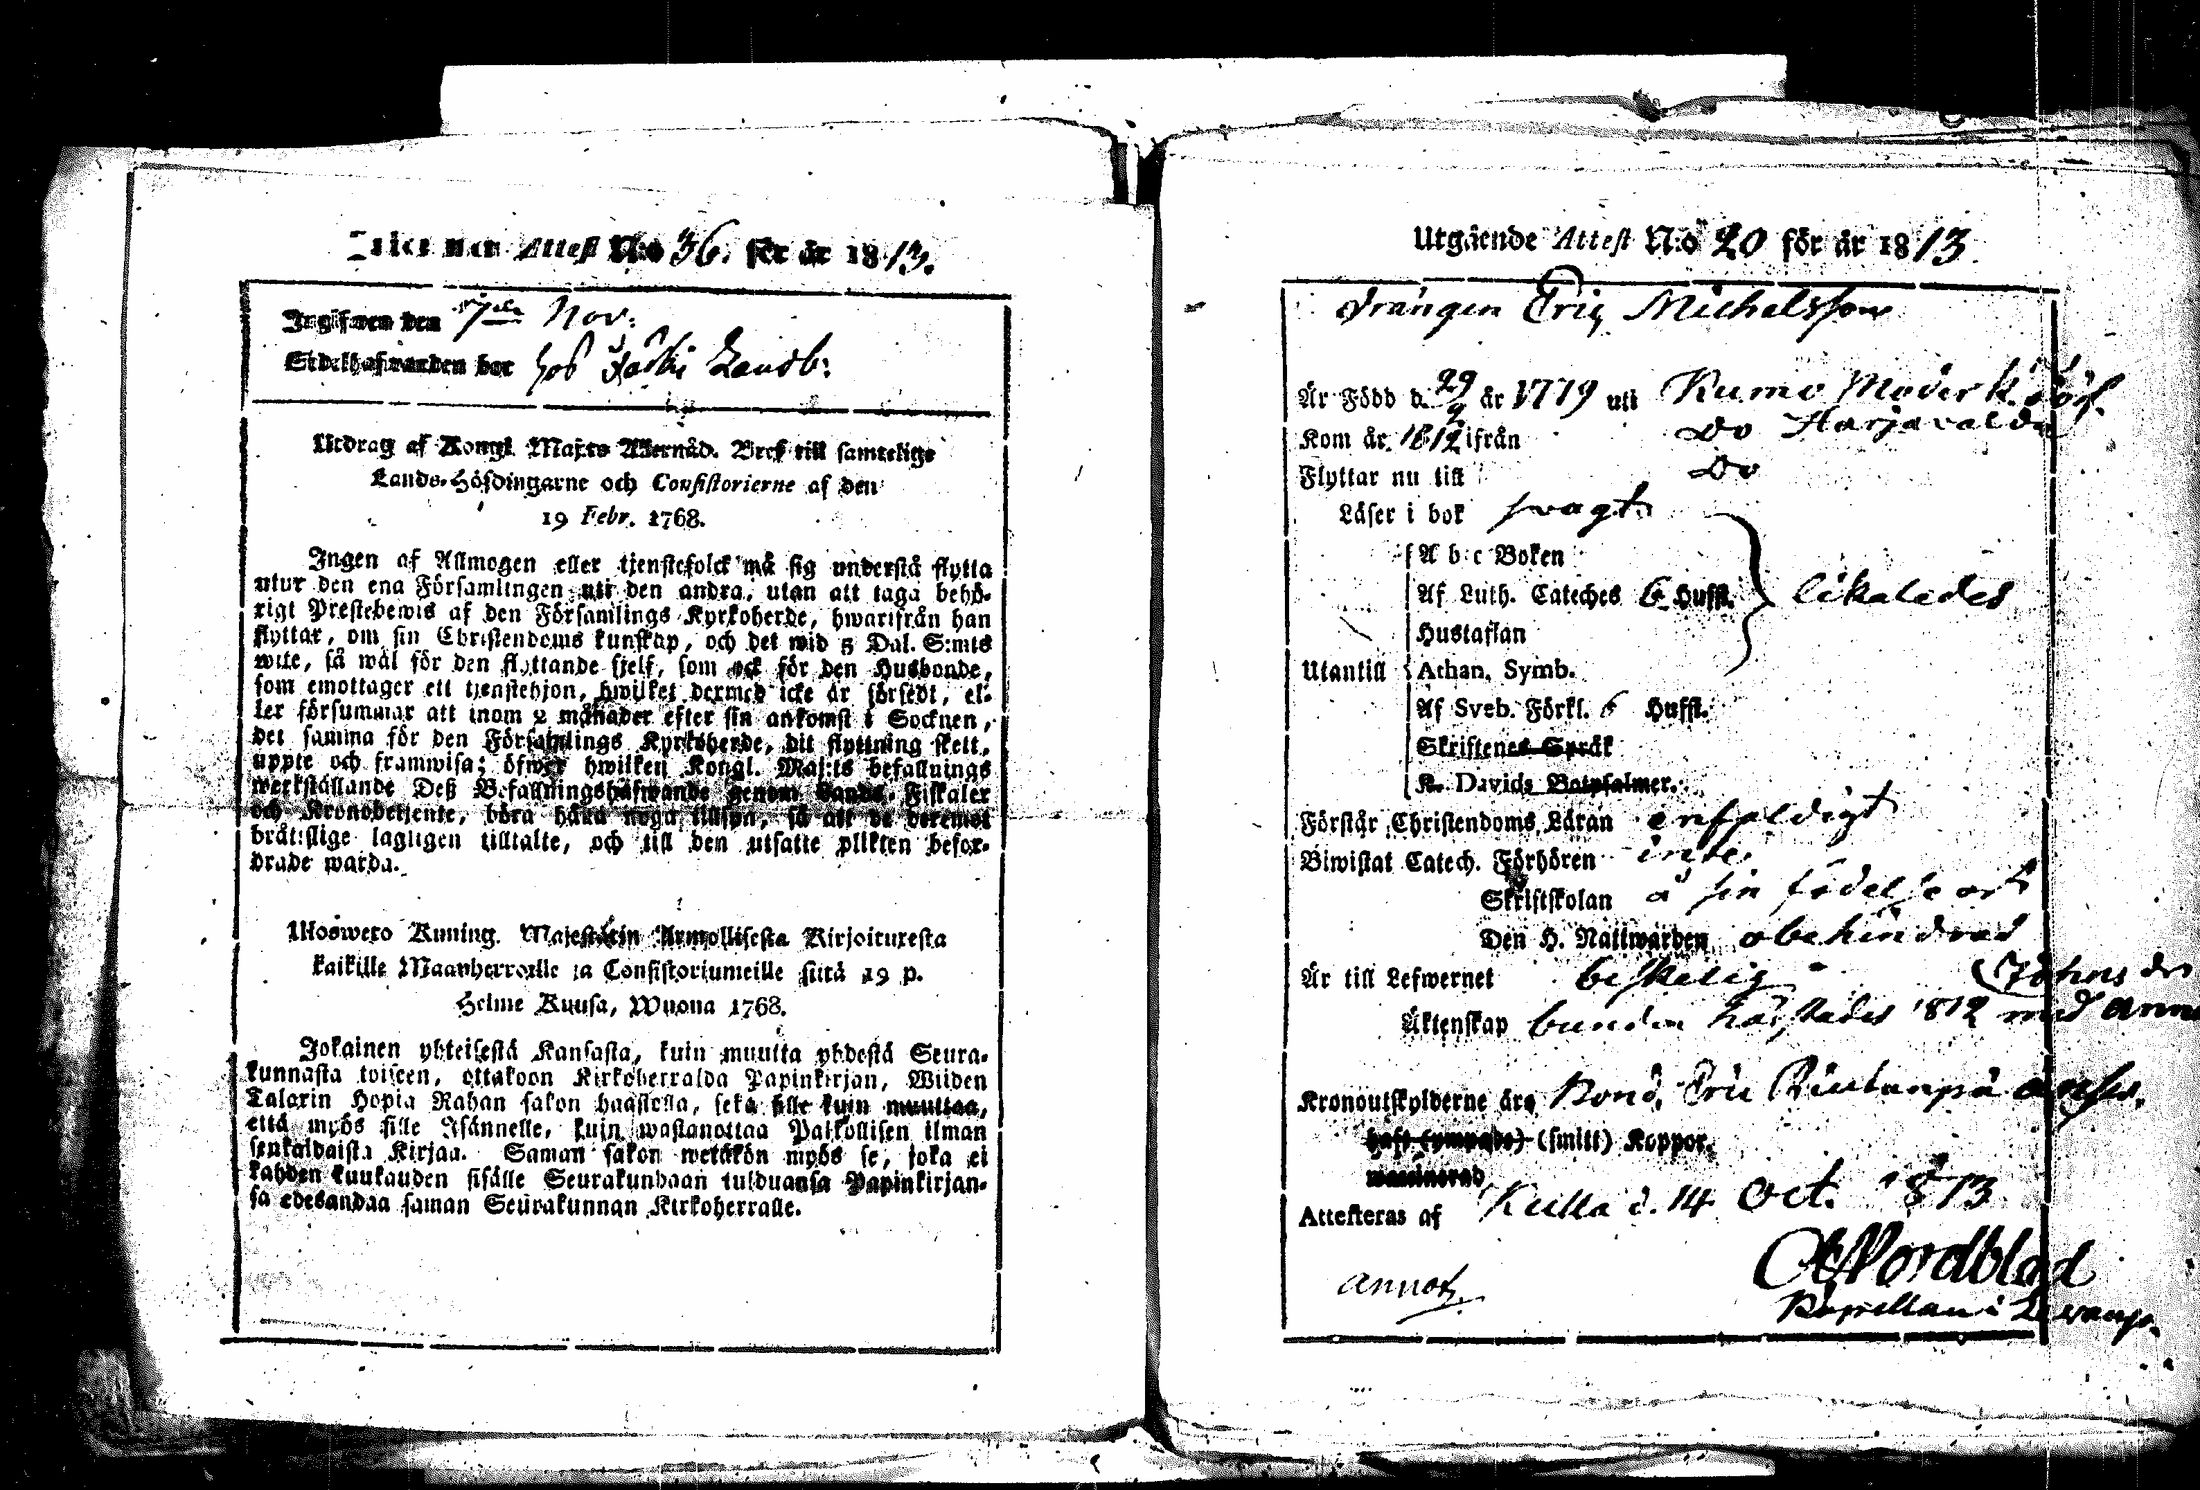 Attest N:o 36. för år 1813.
Ingifwen den 7de Nov:
Erdelhafwanden bor hos Jaski Landb:
Utdrag af Kongl. Maj:ts Wernåd. Bref till samtelige
Lands-Höfdingarne och Consistorierne af den
19 Febr. 1768.
Ingen af Allmogen eller tjenstefolck må sig understå flytta
utur den ena Församlingen uti den andra, utan att taga behö-
rigt Prestebewis af den Församlings Kyrkoherde, hwarifrån han
flyttar, om sin Christendoms kunskap, och det wid 5 Dal. S:mts
wite, så wäl för den flyttande sjelf, som ock för den Husbonde,
som emottager ett tjenstehjon, hwilket dermed icke är försedt, el-
ler försummar att inom 2 månader efter sin ankomst i Socknen,
det samma för den Församlings Kyrkoherde, dit flyttning skett,
uppte och framwisa; öfwer hwilken Kongl. Maj:ts befallnings
werkställande Deß Befallningshafwande genom Lands-Fiskaler
och Kronobetjente, böra hafwa noga tillsyn, så att de deremot
bråtslige lagligen tilltalte, och till den utsatte plikten befor-
drade warda.
Uloswero Kuning. Majestätin Armollisesta Kirjoituxesta
kaikille Maanherroille ja Consistoriumeille siitä 19 p.
Helme Kuusa, Wuona 1768.
Jokainen yhteisestä Kansasta, kuin muutta yhdestä Seura-
kunnasta toiseen, ottakoon Kirkoherralda Papinkirjan, Wiiden
Talarin Hopia Rahan sakon haastolla, sekä sille kuin muuttaa,
että myös sille Isännelle, kuin wastanottaa Palkollisen ilman
senkaldaista Kirjaa. Saman sakon wetäkön myös se, joka ei
kahden kuukauden sisälle Seurakundaan tulduansa Papinkirjan-
sa edesandaa saman Seurakunnan Kirkoherralle.
Utgående Attest N:o 20 för år 1813
Drängen Eric Michelsson
Är Född d. 29/9 år 1779 uti Kumo Moderk. förs.
Kom år 1812 ifrån Do Harjavalda
Flyttar nu till Do
Läser i bok swagt
A b c Boken
Af Luth. Cateches 6 Huffst. likaledes
Hustaflan
Utantill Athan. Symb.
Af Sveb. Förkl. 6 Huffst.
Skriftenes Språk
K. Davids Botpsalmer.
Förstår Christendoms Läran enfaldigt
Biwistat Catech. Förhören inte
Skriftskolan å sin födelse ort
Den H. Nattwarden obehindrad
Är till Lefwernet beskelig
Johns dr
Äktenskap bunden höstetides 1812 med Anna
Kronoutskylderne äro Bond. Eric answ.
haft (ympade) (smitt) Koppor.
waccinerad
Attesteras af Kulla d. 14 Oct. 1813
Nordblad
annot. Kapellan i